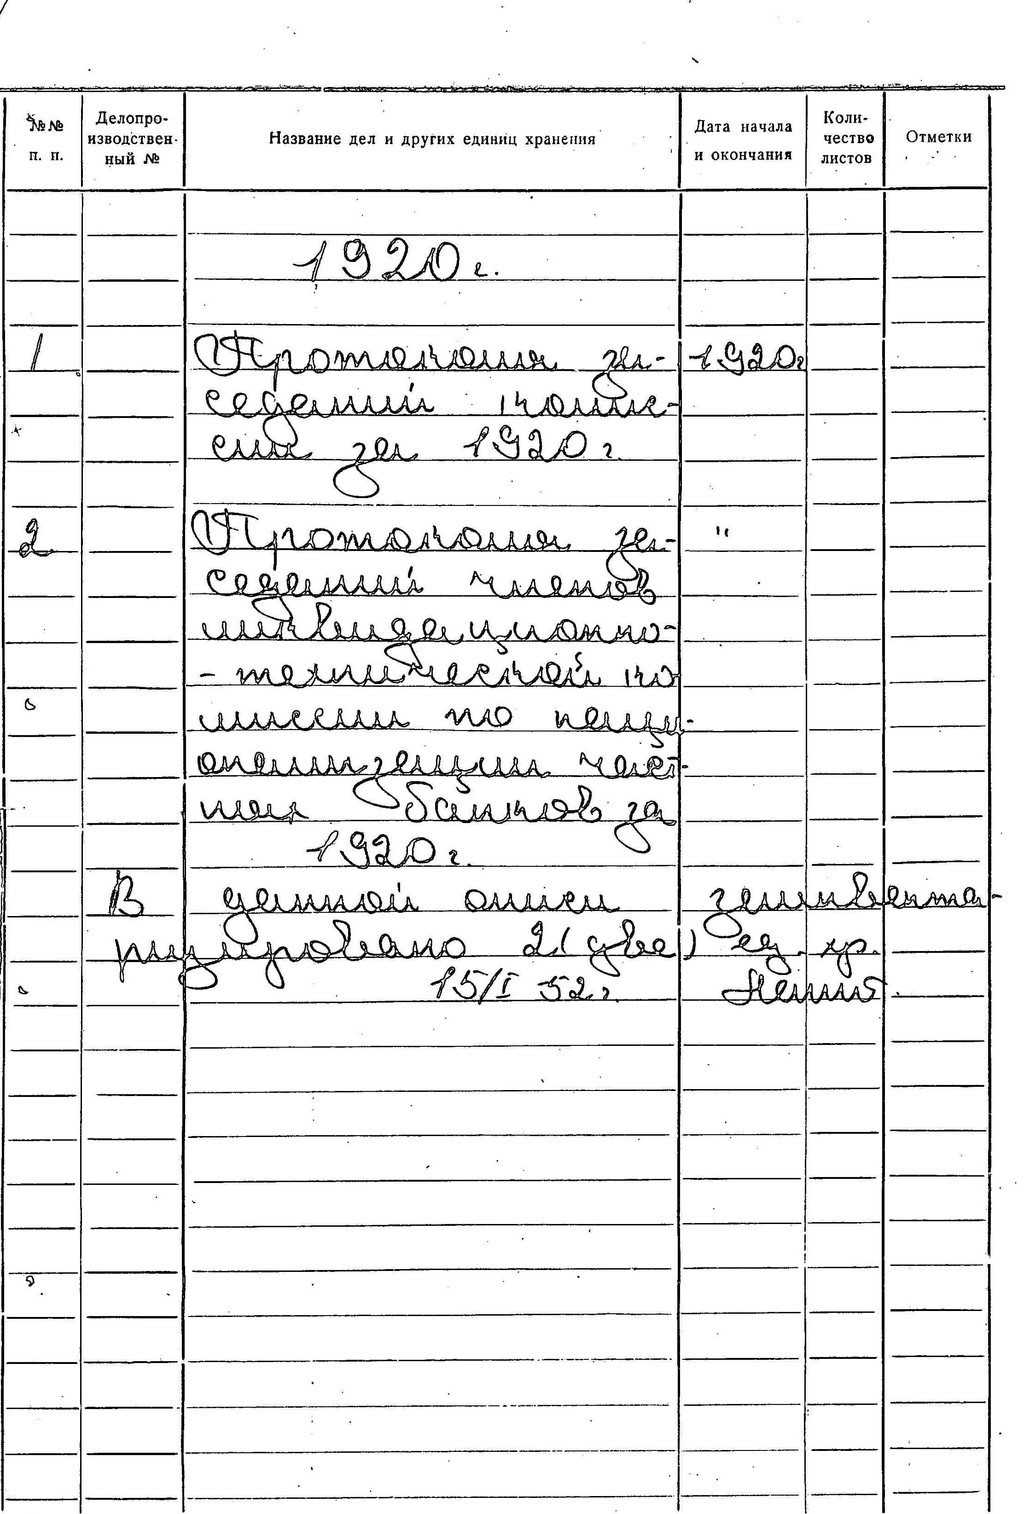 №№ п. п.
Делопро-
изводствен-
ный №
Название дел и других единиц хранения
Дата начала
и окончания
Коли-
чество
листов
Отметки
1920 г.
1 Протоколы за- 1920г
седаний комис-
сии за 1920 г.
2 Протоколы за- "
седаний членов
ликвидационно-
- технической ко
миссии по наци-
онализации част-
ных банков за
1920 г.
В данной описи заинвента-
ризировано 2 (две) ед. хр.
15/I 52 г.